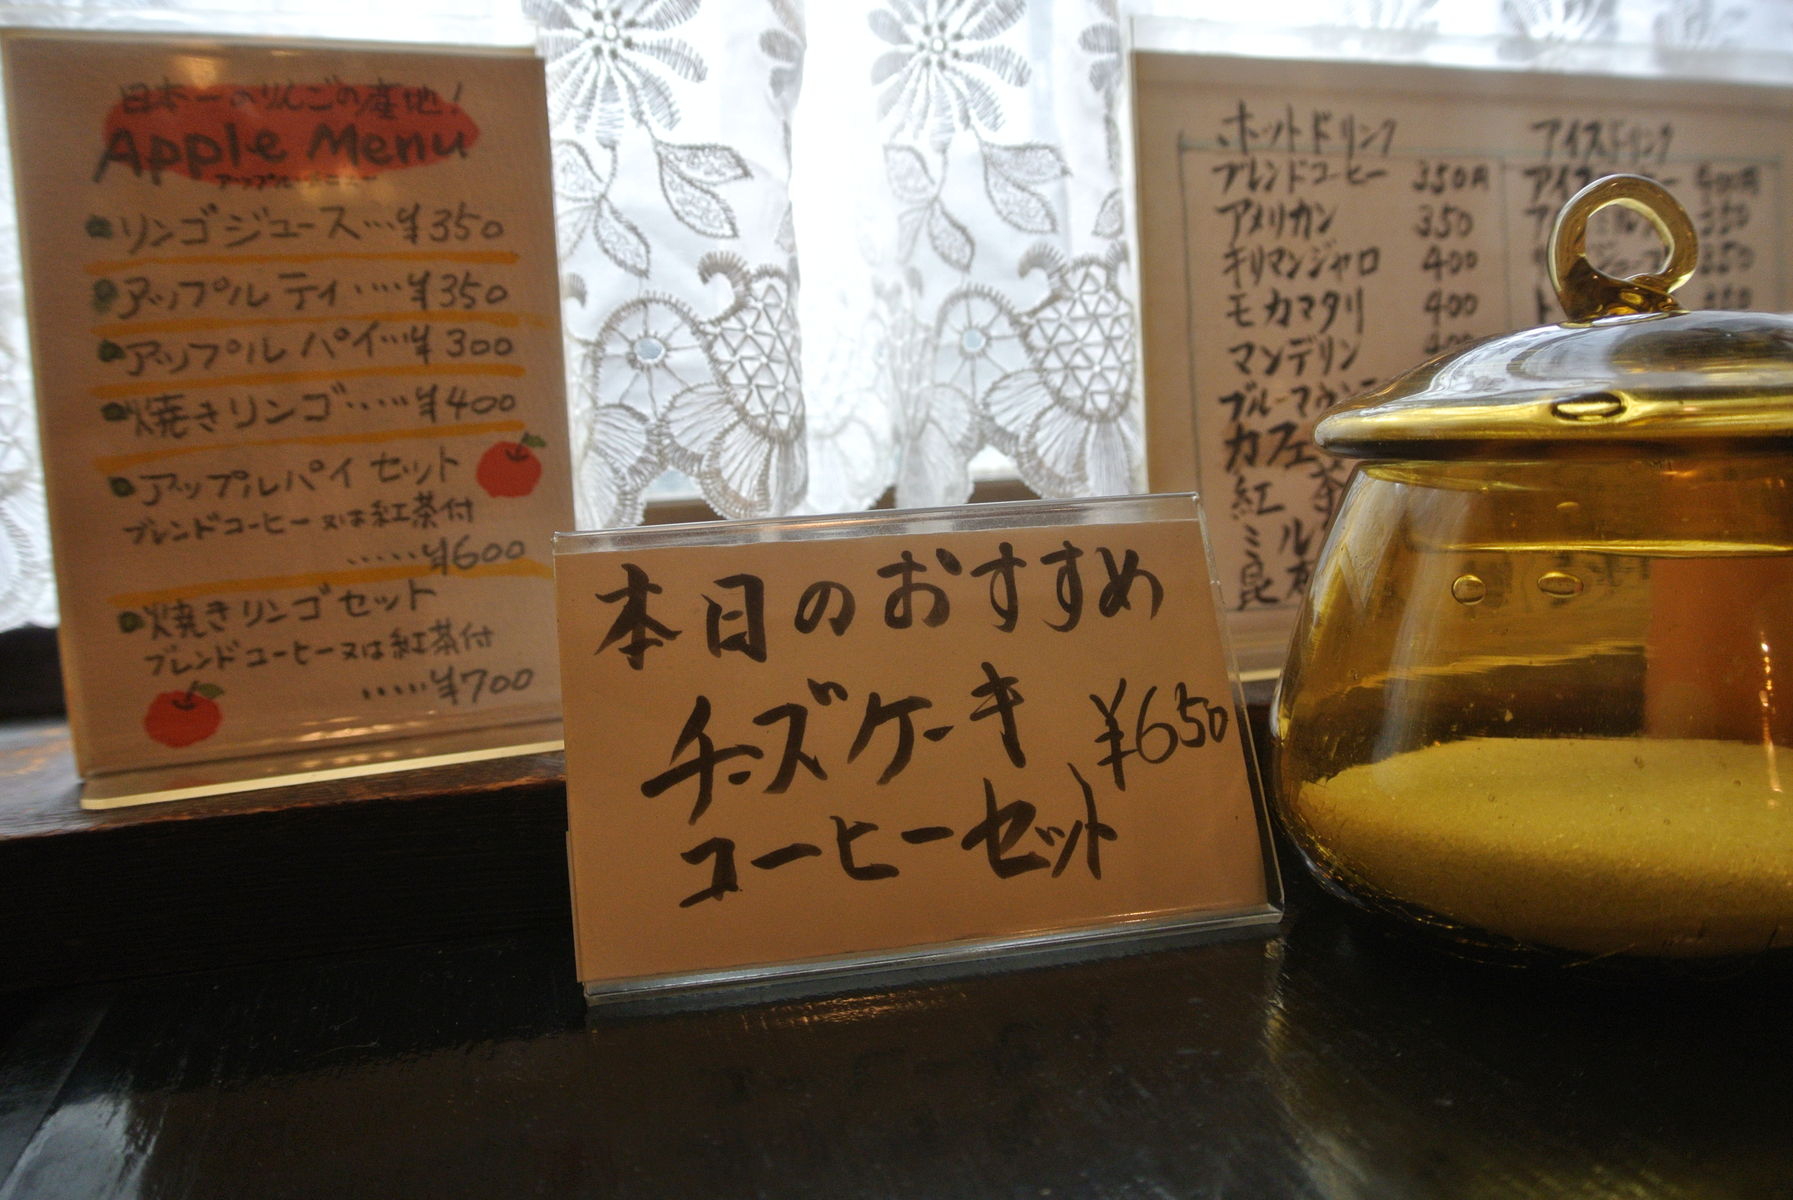 日本一のりんごの産地!
Apple Menu
リンゴジュース…¥350
アップルティ….¥350
アップルパイ…¥300
焼きリンゴ……¥400
アップルパイセット
ブレンドコーヒー又は紅茶付
……¥600
焼きリンゴセット
ブレンドコーヒー又は紅茶付
……¥700
本日のおすすめ
チーズケーキ
¥650
コーヒーセット
ホットドリンク
ブレンドコーヒー 350円
アメリカン 350
キリマンジャロ 400
モカマタリ 400
マンデリン 400
ブルーマウン
カフェ
紅茶
ミル
アイスドリンク